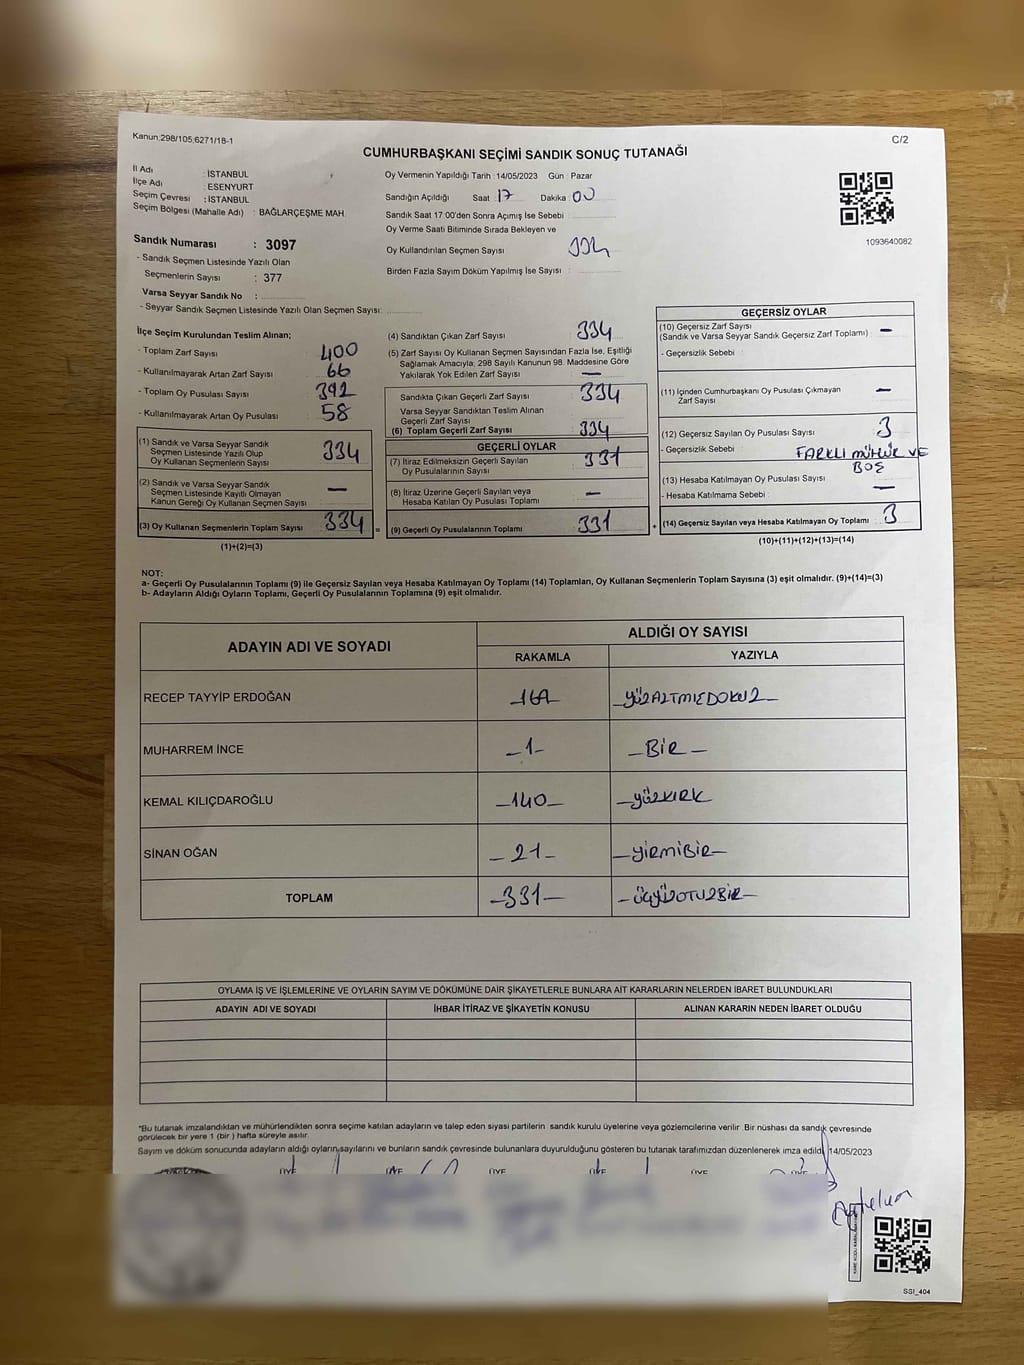 Kanun:298/105;6271/18-1
C/2
CUMHURBAŞKANI SEÇİMİ SANDIK SONUÇ TUTANAĞI
İl Adı : İSTANBUL
İlçe Adı : ESENYURT
Seçim Çevresi : İSTANBUL
Seçim Bölgesi (Mahalle Adı) : BAĞLARÇEŞME MAH.
Sandık Numarası : 3097
- Sandık Seçmen Listesinde Yazılı Olan
Seçmenlerin Sayısı : 377
Varsa Seyyar Sandık No :
- Seyyar Sandık Seçmen Listesinde Yazılı Olan Seçmen Sayısı:
Oy Vermenin Yapıldığı Tarih :14/05/2023 Gün : Pazar
Sandığın Açıldığı Saat : 17 Dakika : 00
Sandık Saat 17:00'den Sonra Açımış İse Sebebi
Oy Verme Saati Bitiminde Sırada Bekleyen ve
Oy Kullandırılan Seçmen Sayısı 334
Birden Fazla Sayım Döküm Yapılmış İse Sayısı :
1093640082
İlçe Seçim Kurulundan Teslim Alınan;
- Toplam Zarf Sayısı 400
- Kullanılmayarak Artan Zarf Sayısı 66
- Toplam Oy Pusulası Sayısı 392
- Kullanılmayarak Artan Oy Pusulası 58
(1) Sandık ve Varsa Seyyar Sandık
Seçmen Listesinde Yazılı Olup
Oy Kullanan Seçmenlerin Sayısı 334
(2) Sandık ve Varsa Seyyar Sandık
Seçmen Listesinde Kayıtlı Olmayan
Kanun Gereği Oy Kullanan Seçmen Sayısı —
(3) Oy Kullanan Seçmenlerin Toplam Sayısı 334
(1)+(2)=(3)
(4) Sandıktan Çıkan Zarf Sayısı : 334
(5) Zarf Sayısı Oy Kullanan Seçmen Sayısından Fazla İse, Eşitliği
Sağlamak Amacıyla, 298 Sayılı Kanunun 98. Maddesine Göre
Yakılarak Yok Edilen Zarf Sayısı : —
Sandıkta Çıkan Geçerli Zarf Sayısı : 334
Varsa Seyyar Sandıktan Teslim Alınan
Geçerli Zarf Sayısı
(6) Toplam Geçerli Zarf Sayısı : 334
GEÇERLİ OYLAR
(7) İtiraz Edilmeksizin Geçerli Sayılan
Oy Pusulalarının Sayısı : 331
(8) İtiraz Üzerine Geçerli Sayılan veya
Hesaba Katılan Oy Pusulası Toplamı : —
= (9) Geçerli Oy Pusulalarının Toplamı : 331
GEÇERSİZ OYLAR
(10) Geçersiz Zarf Sayısı
(Sandık ve Varsa Seyyar Sandık Geçersiz Zarf Toplamı) : —
- Geçersizlik Sebebi :
(11) İçinden Cumhurbaşkanı Oy Pusulası Çıkmayan
Zarf Sayısı : —
(12) Geçersiz Sayılan Oy Pusulası Sayısı : 3
- Geçersizlik Sebebi : FARKLI MÜHÜR VE
BOŞ
(13) Hesaba Katılmayan Oy Pusulası Sayısı : —
- Hesaba Katılmama Sebebi :
+ (14) Geçersiz Sayılan veya Hesaba Katılmayan Oy Toplamı : 3
(10)+(11)+(12)+(13)=(14)
NOT:
a- Geçerli Oy Pusulalarının Toplamı (9) ile Geçersiz Sayılan veya Hesaba Katılmayan Oy Toplamı (14) Toplamları, Oy Kullanan Seçmenlerin Toplam Sayısına (3) eşit olmalıdır. (9)+(14)=(3)
b- Adayların Aldığı Oyların Toplamı, Geçerli Oy Pusulalarının Toplamına (9) eşit olmalıdır.
ADAYIN ADI VE SOYADI ALDIĞI OY SAYISI
RAKAMLA YAZIYLA
RECEP TAYYİP ERDOĞAN -169- -YÜZALTMIŞDOKUZ-
MUHARREM İNCE -1- -BİR-
KEMAL KILIÇDAROĞLU -140- -YÜZKIRK
SİNAN OĞAN -21- -YİRMİBİR-
TOPLAM -331- -ÜÇYÜZOTUZBİR-
OYLAMA İŞ VE İŞLEMLERİNE VE OYLARIN SAYIM VE DÖKÜMÜNE DAİR ŞİKAYETLERLE BUNLARA AİT KARARLARIN NELERDEN İBARET BULUNDUKLARI
ADAYIN ADI VE SOYADI İHBAR İTİRAZ VE ŞİKAYETİN KONUSU ALINAN KARARIN NEDEN İBARET OLDUĞU
*Bu tutanak imzalandıktan ve mühürlendikten sonra seçime katılan adayların ve talep eden siyasi partilerin sandık kurulu üyelerine veya gözlemcilerine verilir. Bir nüshası da sandık çevresinde
görülecek bir yere 1 (bir ) hafta süreyle asılır.
Sayım ve döküm sonucunda adayların aldığı oyların sayılarını ve bunların sandık çevresinde bulunanlara duyurulduğunu gösteren bu tutanak tarafımızdan düzenlenerek imza edildi. 14/05/2023
ÜYE ÜYE ÜYE ÜYE ÜYE ÜYE
SSI_404